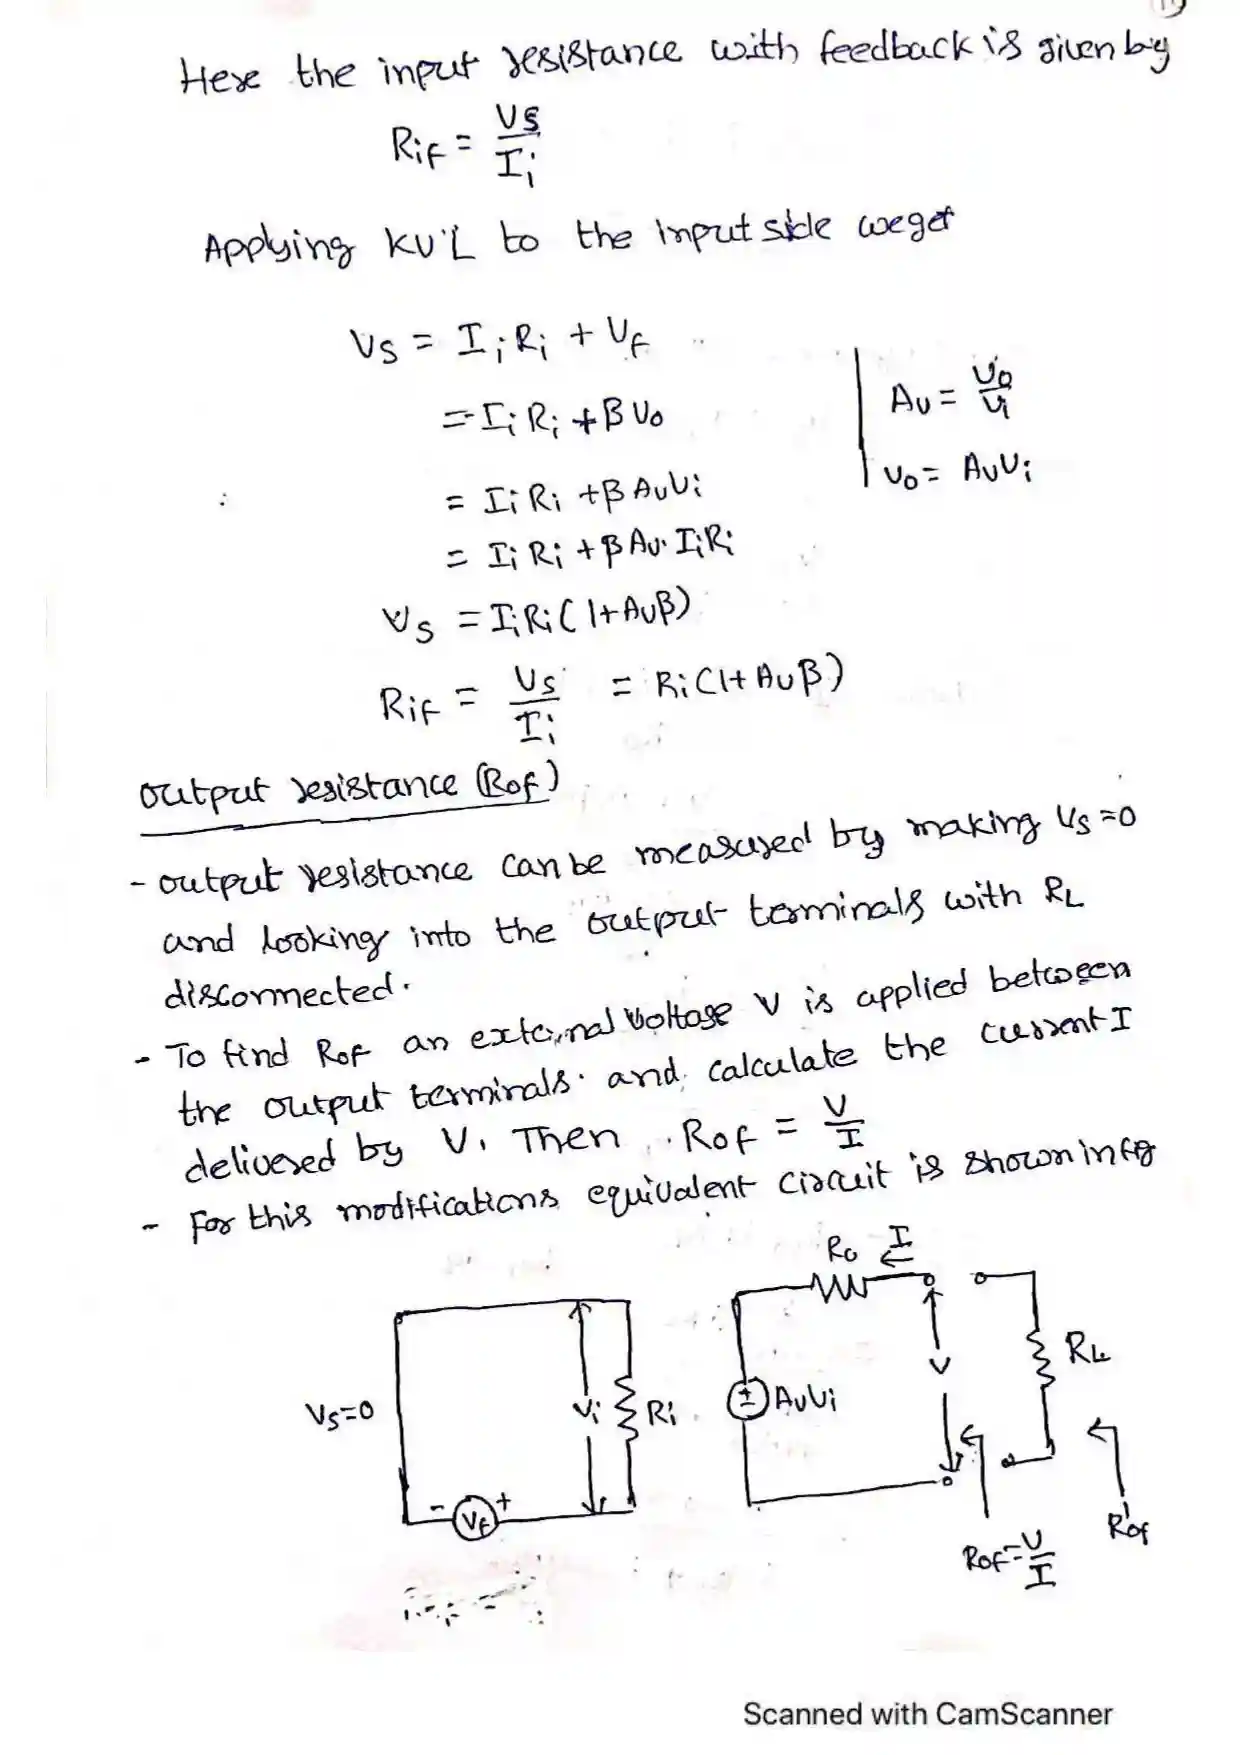 Here the input resistance with feedback is given by
Rif = Vs / Ii
Applying KV'L to the input side we get
Vs = Ii Ri + Vf
= Ii Ri + β Vo
Av = Vo / Vi
= Ii Ri + β Av Vi
Vo = Av Vi
= Ii Ri + β Av. Ii Ri
Vs = Ii Ri (1+Avβ)
Rif = Vs / Ii = Ri (1+Avβ)
output resistance (Rof)
- output resistance can be measured by making Vs=0
and looking into the output terminals with RL
disconnected.
- To find Rof an external voltage V is applied between
the output terminals. and calculate the current I
delivered by V. Then Rof = V / I
- For this modifications equivalent circuit is shown in fig
Ro I
Vs=0 Vi Ri ± AvVi V RL
- Vf +
Rof = V / I R'of
Scanned with CamScanner